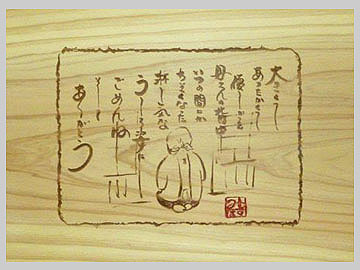 大きくて
あったかくて
優しかった
母さんの背中
いつの間にか
ちっちゃくなった
淋し気な
うしろ姿に
ごめんね
そして
ありがとう